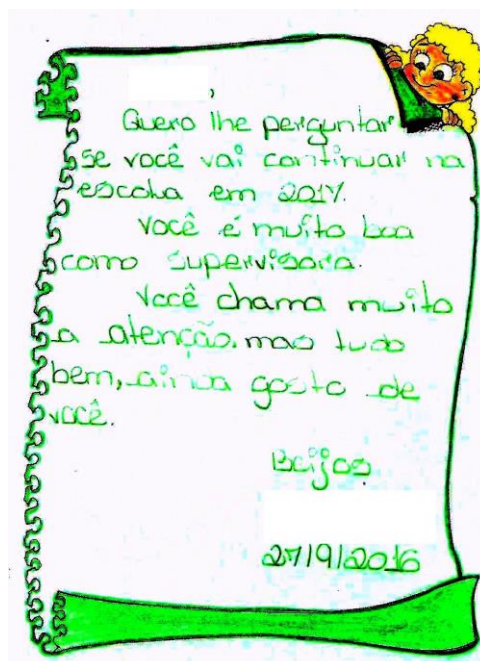 ,
Quero lhe perguntar
se você vai continuar na
escola em 2017.
Você é muito boa
como supervisora.
Você chama muito
a atenção, mas tudo
bem, ainda gosto de
você.
Beijos
27/9/2016